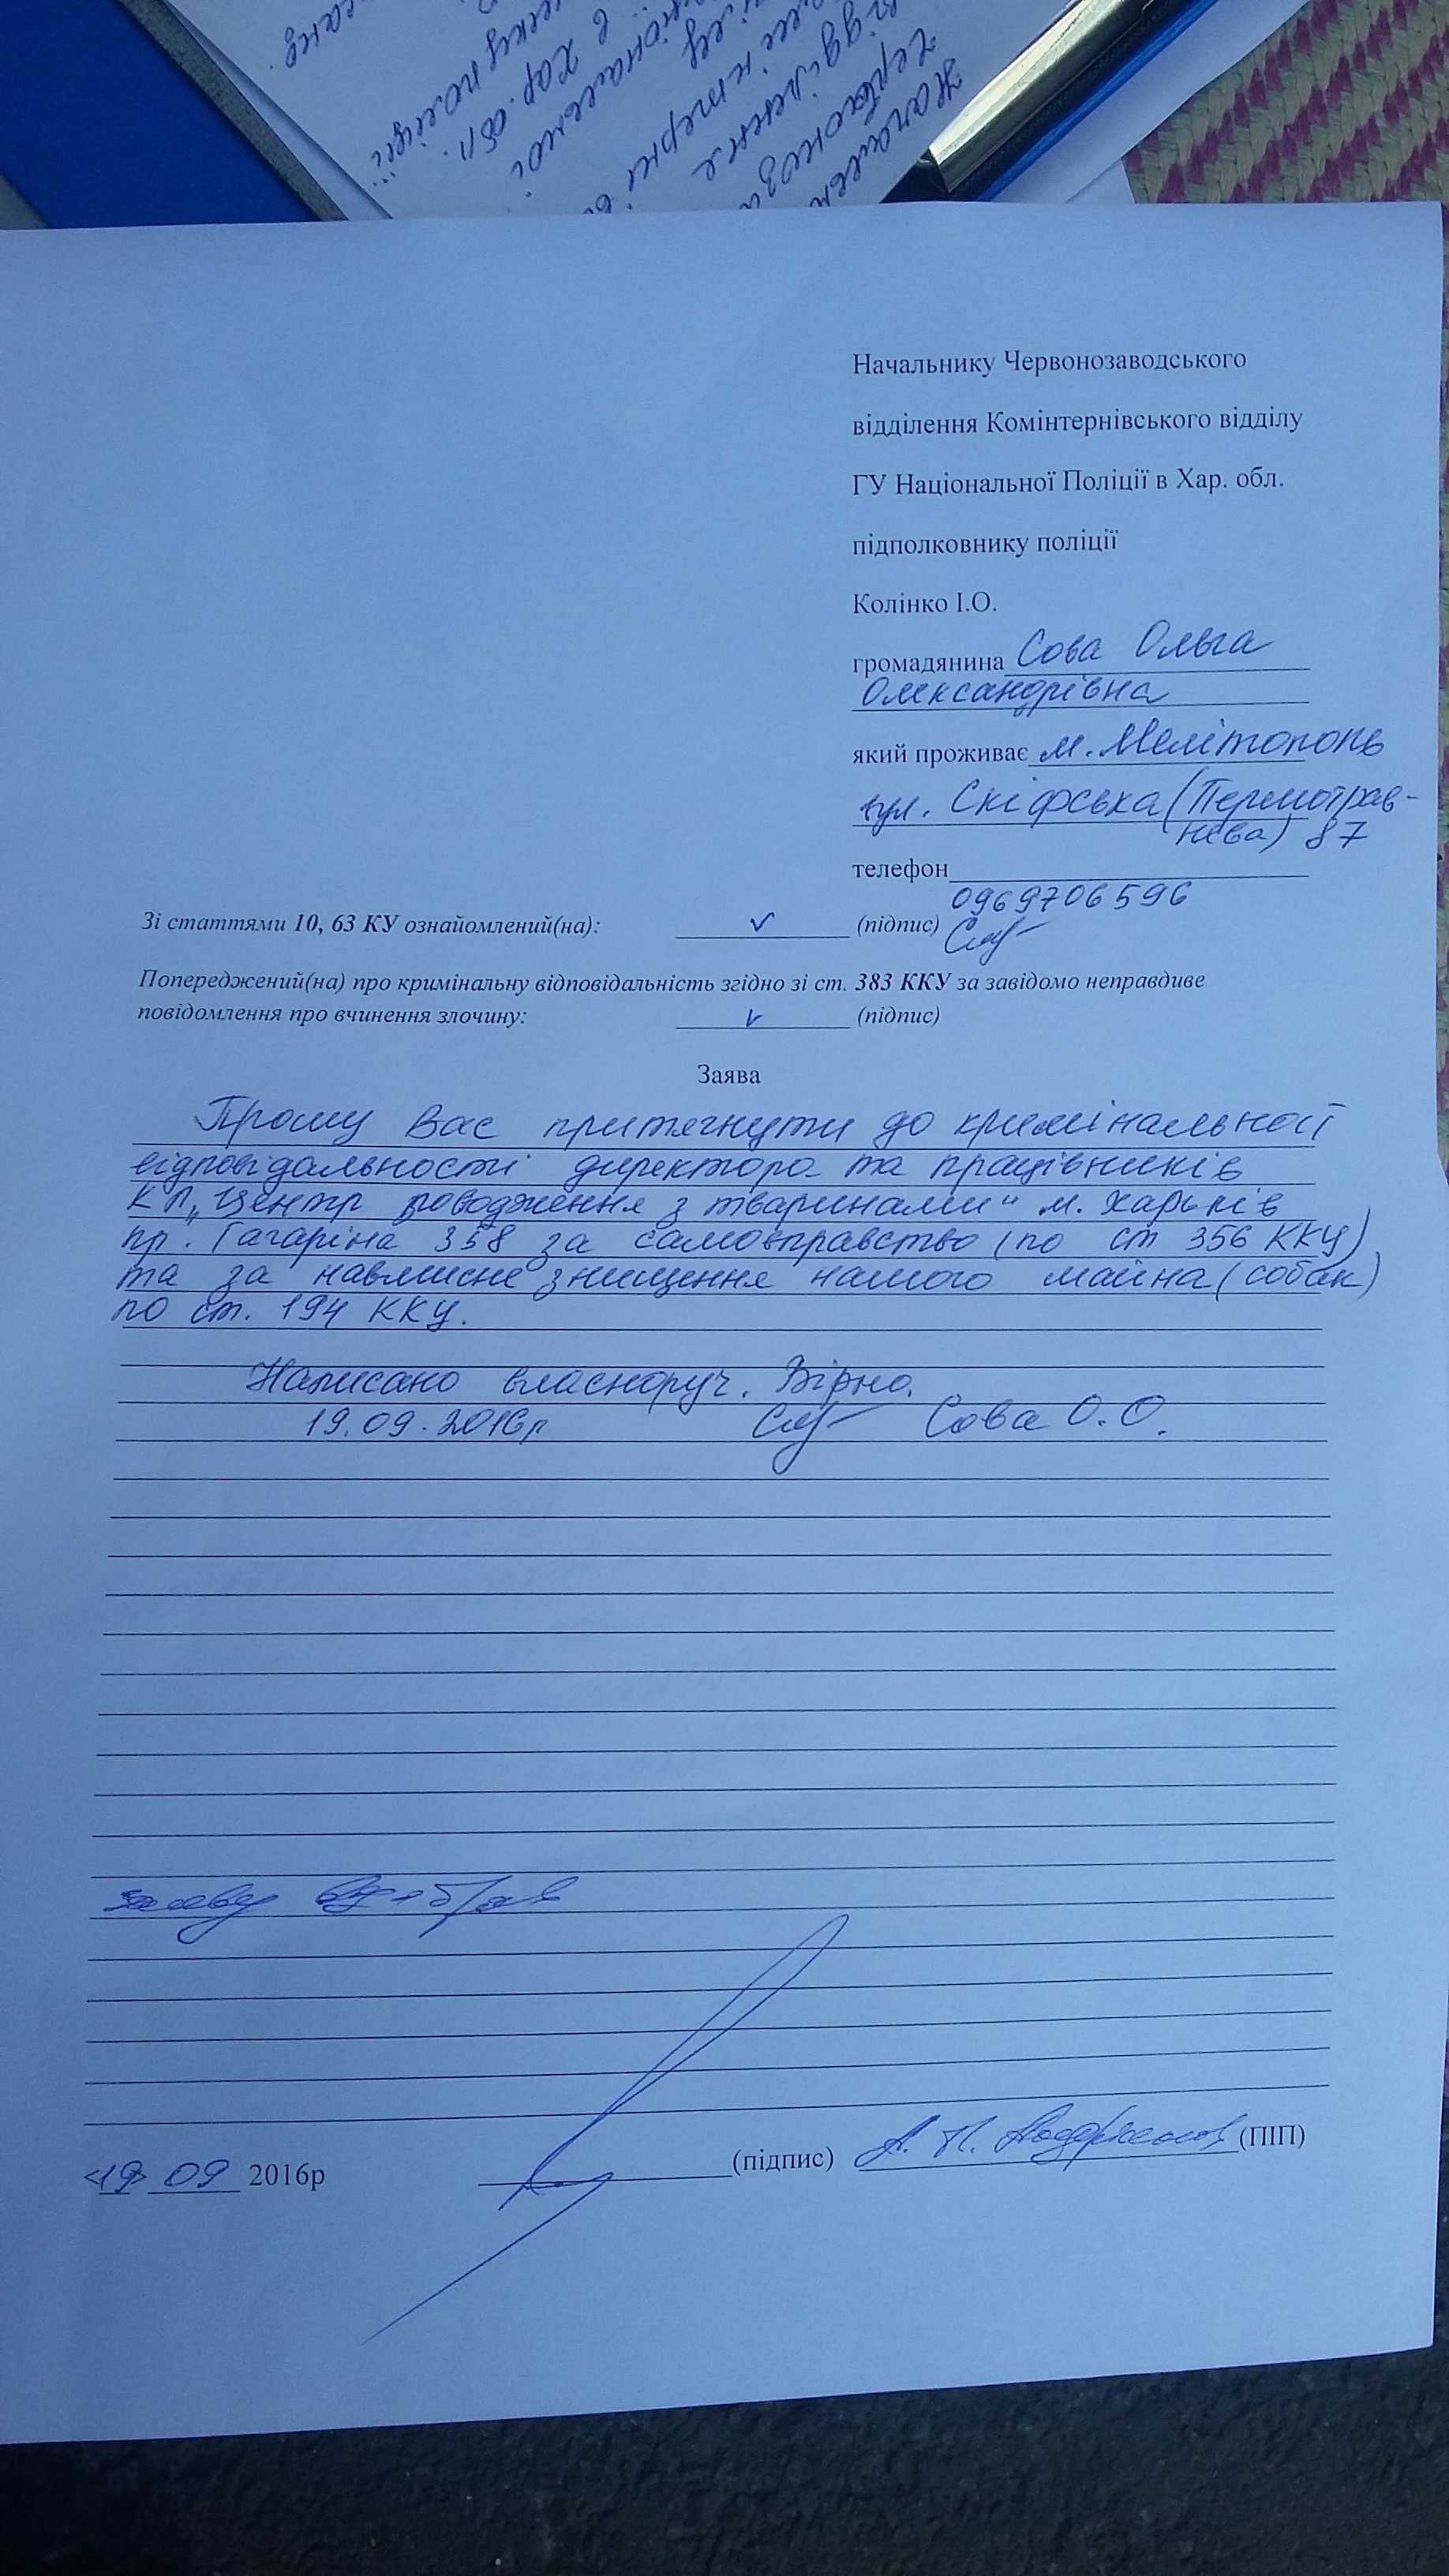 сане
шику поліції
Хар. обл.
в
Начальнику Червонозаводського
відділення Комінтернівського відділу
ГУ Національної Поліції в Хар. обл.
підполковнику поліції
Колінко І.О.
громадянина Сова Ольга
Олександрівна
який проживає м. Мелітополь
вул. Скіфська (Першотрав-
нева) 87
телефон
0969706596
Зі статтями 10, 63 КУ ознайомлений(на): (підпис)
Попереджений(на) про кримінальну відповідальність згідно зі ст. 383 ККУ за завідомо неправдиве
повідомлення про вчинення злочину: (підпис)
Заява
Прошу Вас притягнути до кримінальної
відповідальності директора та працівників
КП„Центр поводження з тваринами“ м. Харьків
пр. Гагаріна 358 за самовправство (по ст 356 ККУ),
та за навмисне знищення нашого майна (собак)
по ст. 194 ККУ.
Написано власноруч. Вірно.
19.09.2016р Сова О.О.
заяву
«19» 09 2016р (підпис) А. П. (ПІП)